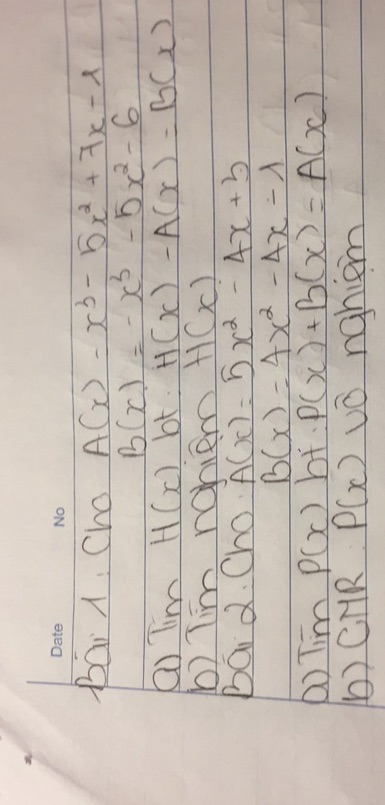 Date No
Bài 1: Cho A(x) = x³ - 5x² + 7x - 1
B(x) = - x³ - 5x² - 6
a) Tìm H(x) bt: H(x) - A(x) = B(x)
b) Tìm nghiệm H(x)
Bài 2: Cho: A(x) = 5x² - 4x + 3
B(x) = 4x² - 4x - 1
a) Tìm P(x) bt: P(x) + B(x) = A(x)
b) CMR: P(x) vô nghiệm